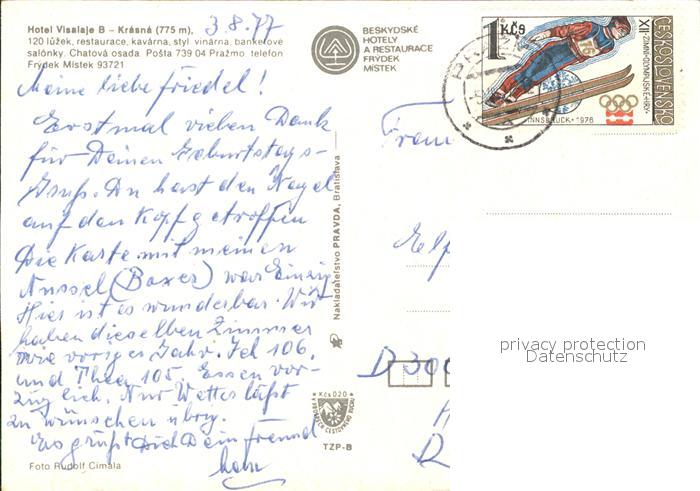 Hotel Visalaje B - Krásná (775 m),
120 lůžek, restaurace, kavárna, styl. vinárna, banketové
salónky. Chatová osada. Pošta 739 04 Pražmo, telefon
Frýdek Místek 93721
3.8.77
BESKYDSKÉ
HOTELY
A RESTAURACE
FRÝDEK
MÍSTEK
1 Kčs
ČESKOSLOVENSKO
XII. ZIMNÍ OLYMPIJSKÉ HRY
INNSBRUCK • 1976
Meine liebe Friedel!
Erstmal vielen Dank
für Deinen Geburtstags-
gruß. Du hast den Nagel
auf den Kopf getroffen
Die Karte mit meinen
(Boxer) war Einzig
Hier ist es wunderbar. Wir
haben dieselben Zimmer
wie voriges Jahr. Ich 106,
und Thea 105. Essen vor-
züglich. Nur Wetter läßt
zu wünschen übrig.
Es grüßt Dich Dein Freund
Nakladatelstvo PRAVDA, Bratislava
Kčs 0,20
TZP-B
Foto Rudolf Cimala
Frau
D 300
privacy protection
Datenschutz